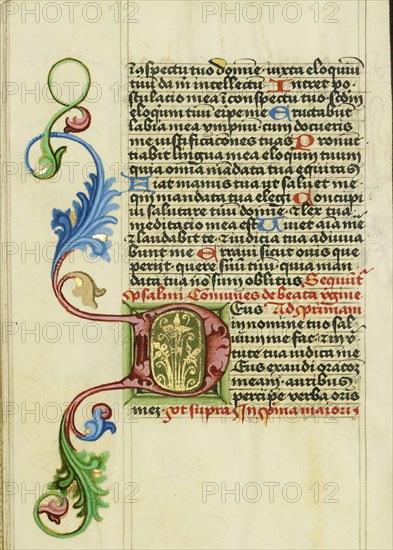 i̅ ɔspectu tuo domi̅e iuxta eloquiu̅
tuu̅ da m̅ intellectu̅ Intret po
stulacio mea i̅ conspectu tuo scd̅m
eloquiu̅ tuu̅ eipe me Eructabu̅t
labia mea ympnu̅ cum docueris
me iustificac̅ones tuas Pronu̅c
tiabit lingua mea eloquiu̅ tuum
quia om̅ia ma̅data tua equitas
Fiat manus tua ut saluet me
qm̅ mandata tua elegi Concupi
ui salutare tuu̅ domi̅e et lex tua
meditacio mea est Viuet ai̅a me
a et laudabit te et iudicia tua adiuua
bunt me Erraui sicut ouis que
perijt quere seruu̅ tuu̅ quia man
data tua no̅ sum oblitus Sequu̅t̅
psalmi Comunes de beata v̅gine
Deus Ad Primam
in nomine tuo sal
uum me fac et in v̅
tute tua iudica me
Deus exaudi or̅acoz
meam auribus
percipe verba oris
mei ut supra in prima maioris
PHOTO 12